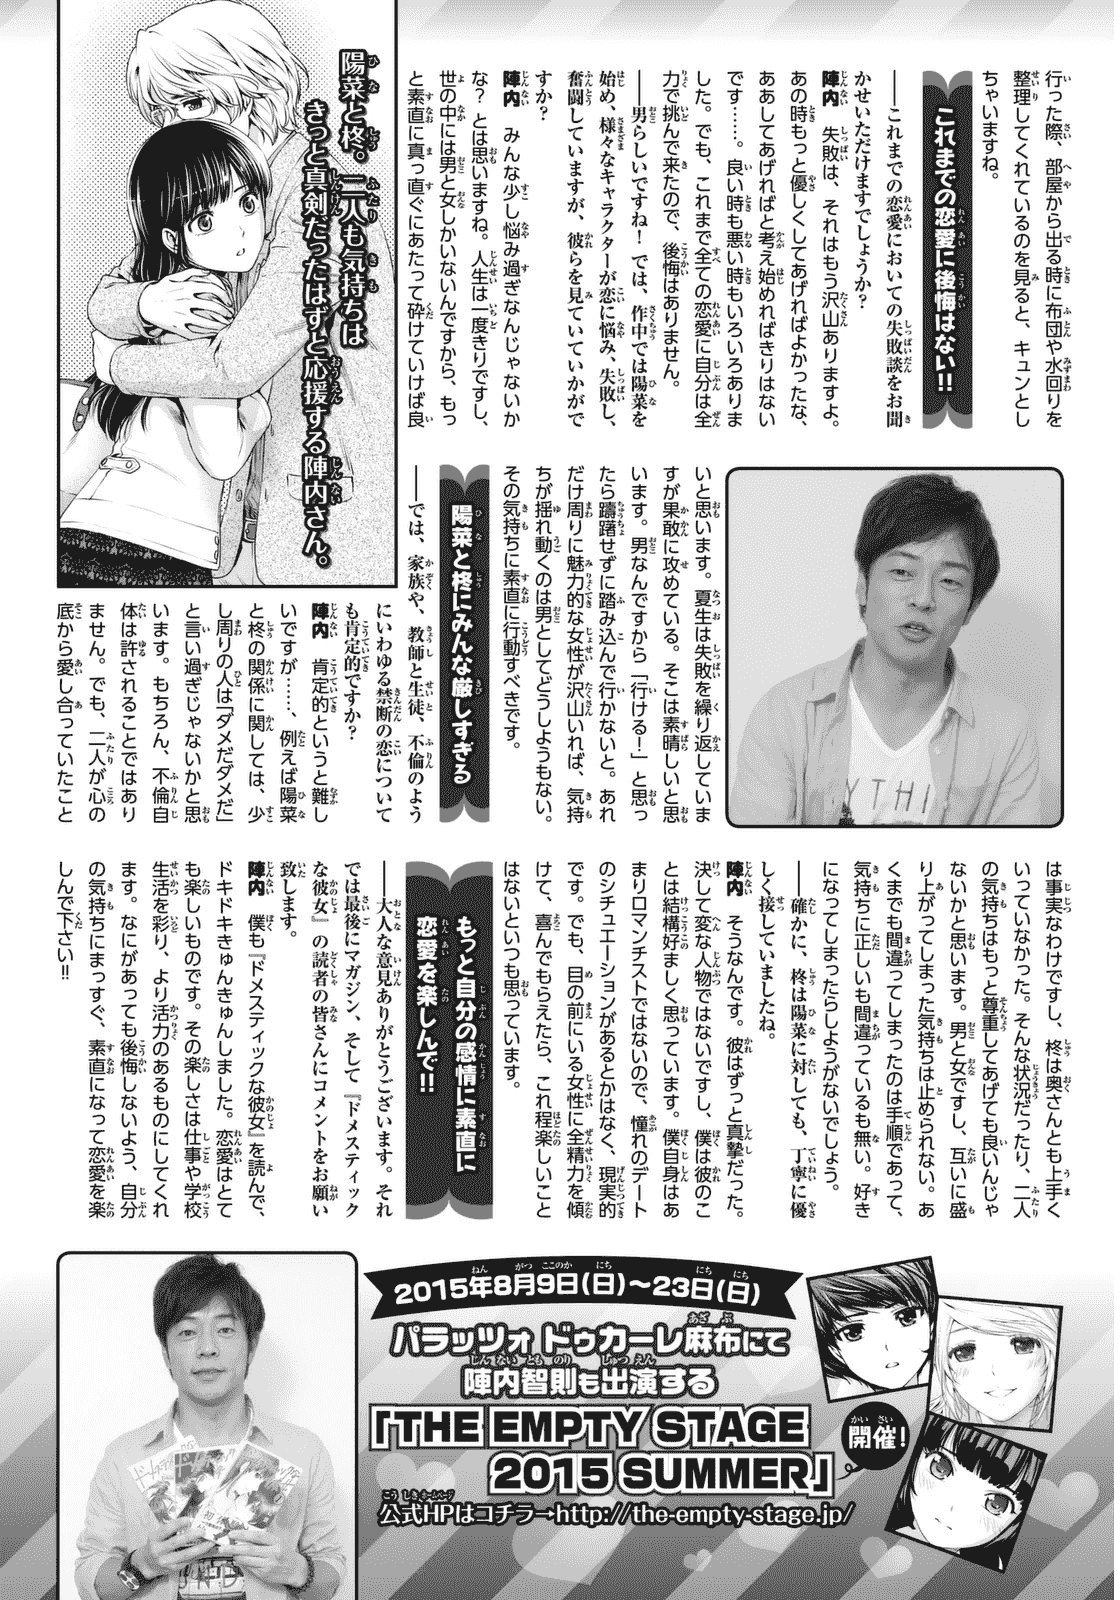 行った際、部屋から出る時に布団や水回りを
整理してくれているのを見ると、キュンとし
ちゃいますね。
これまでの恋愛に後悔はない!!
――これまでの恋愛においての失敗談をお聞
かせいただけますでしょうか?
陣内　失敗は、それはもう沢山ありますよ。
あの時もっと優しくしてあげればよかったな、
ああしてあげればと考え始めればきりはない
です……。良い時も悪い時もいろいろありま
した。でも、これまで全ての恋愛に自分は全
力で挑んで来たので、後悔はありません。
――男らしいですね!では、作中では陽菜を
始め、様々なキャラクターが恋に悩み、失敗し、
奮闘していますが、彼らを見ていていかがで
すか?
陣内　みんな少し悩み過ぎなんじゃないか
な?とは思いますね。人生は一度きりですし、
世の中には男と女しかいないんですから、もっ
と素直に真っ直ぐにあたって砕けていけば良
陽菜と柊。二人も気持ちは
きっと真剣だったはずと応援する陣内さん。
いと思います。夏生は失敗を繰り返していま
すが果敢に攻めている。そこは素晴しいと思
います。男なんですから「行ける!」と思っ
たら躊躇せずに踏み込んで行かないと。あれ
だけ周りに魅力的な女性が沢山いれば、気持
ちが揺れ動くのは男としてどうしようもない。
その気持ちに素直に行動すべきです。
陽菜と柊にみんな厳しすぎる
――では、家族や、教師と生徒、不倫のよう
にいわゆる禁断の恋について
も肯定的ですか?
陣内　肯定的というと難し
いですが……、例えば陽菜
と柊の関係に関しては、少
し周りの人は「ダメだダメだ」
と言い過ぎじゃないかと思
います。もちろん、不倫自
体は許されることではあり
ません。でも、二人が心の
底から愛し合っていたこと
は事実なわけですし、柊は奥さんとも上手く
いっていなかった。そんな状況だったり、二人
の気持ちはもっと尊重してあげても良いんじゃ
ないかと思います。男と女ですし、互いに盛
り上がってしまった気持ちは止められない。あ
くまでも間違ってしまったのは手順であって、
気持ちに正しいも間違っているも無い。好き
になってしまったらしようがないでしょう。
――確かに、柊は陽菜に対しても、丁寧に優
しく接していましたね。
陣内　そうなんです。彼はずっと真摯だった。
決して変な人物ではないですし、僕は彼のこ
とは結構好ましく思っています。僕自身はあ
まりロマンチストではないので、憧れのデート
のシチュエーションがあるとかはなく、現実的
です。でも、目の前にいる女性に全精力を傾
けて、喜んでもらえたら、これ程楽しいこと
はないといつも思っています。
もっと自分の感情に素直に
恋愛を楽しんで!!
――大人な意見ありがとうございます。それ
では最後にマガジン、そして『ドメスティック
な彼女』の読者の皆さんにコメントをお願い
致します。
陣内　僕も『ドメスティックな彼女』を読んで、
ドキドキきゅんきゅんしました。恋愛はとて
も楽しいものです。その楽しさは仕事や学校
生活を彩り、より活力のあるものにしてくれ
ます。なにがあっても後悔しないよう、自分
の気持ちにまっすぐ、素直になって恋愛を楽
しんで下さい!!
2015年8月9日(日)～23日(日)
パラッツォ ドゥカーレ麻布にて
陣内智則も出演する
「THE EMPTY STAGE
2015 SUMMER」
開催!
公式HPはコチラ→http://the-empty-stage.jp/